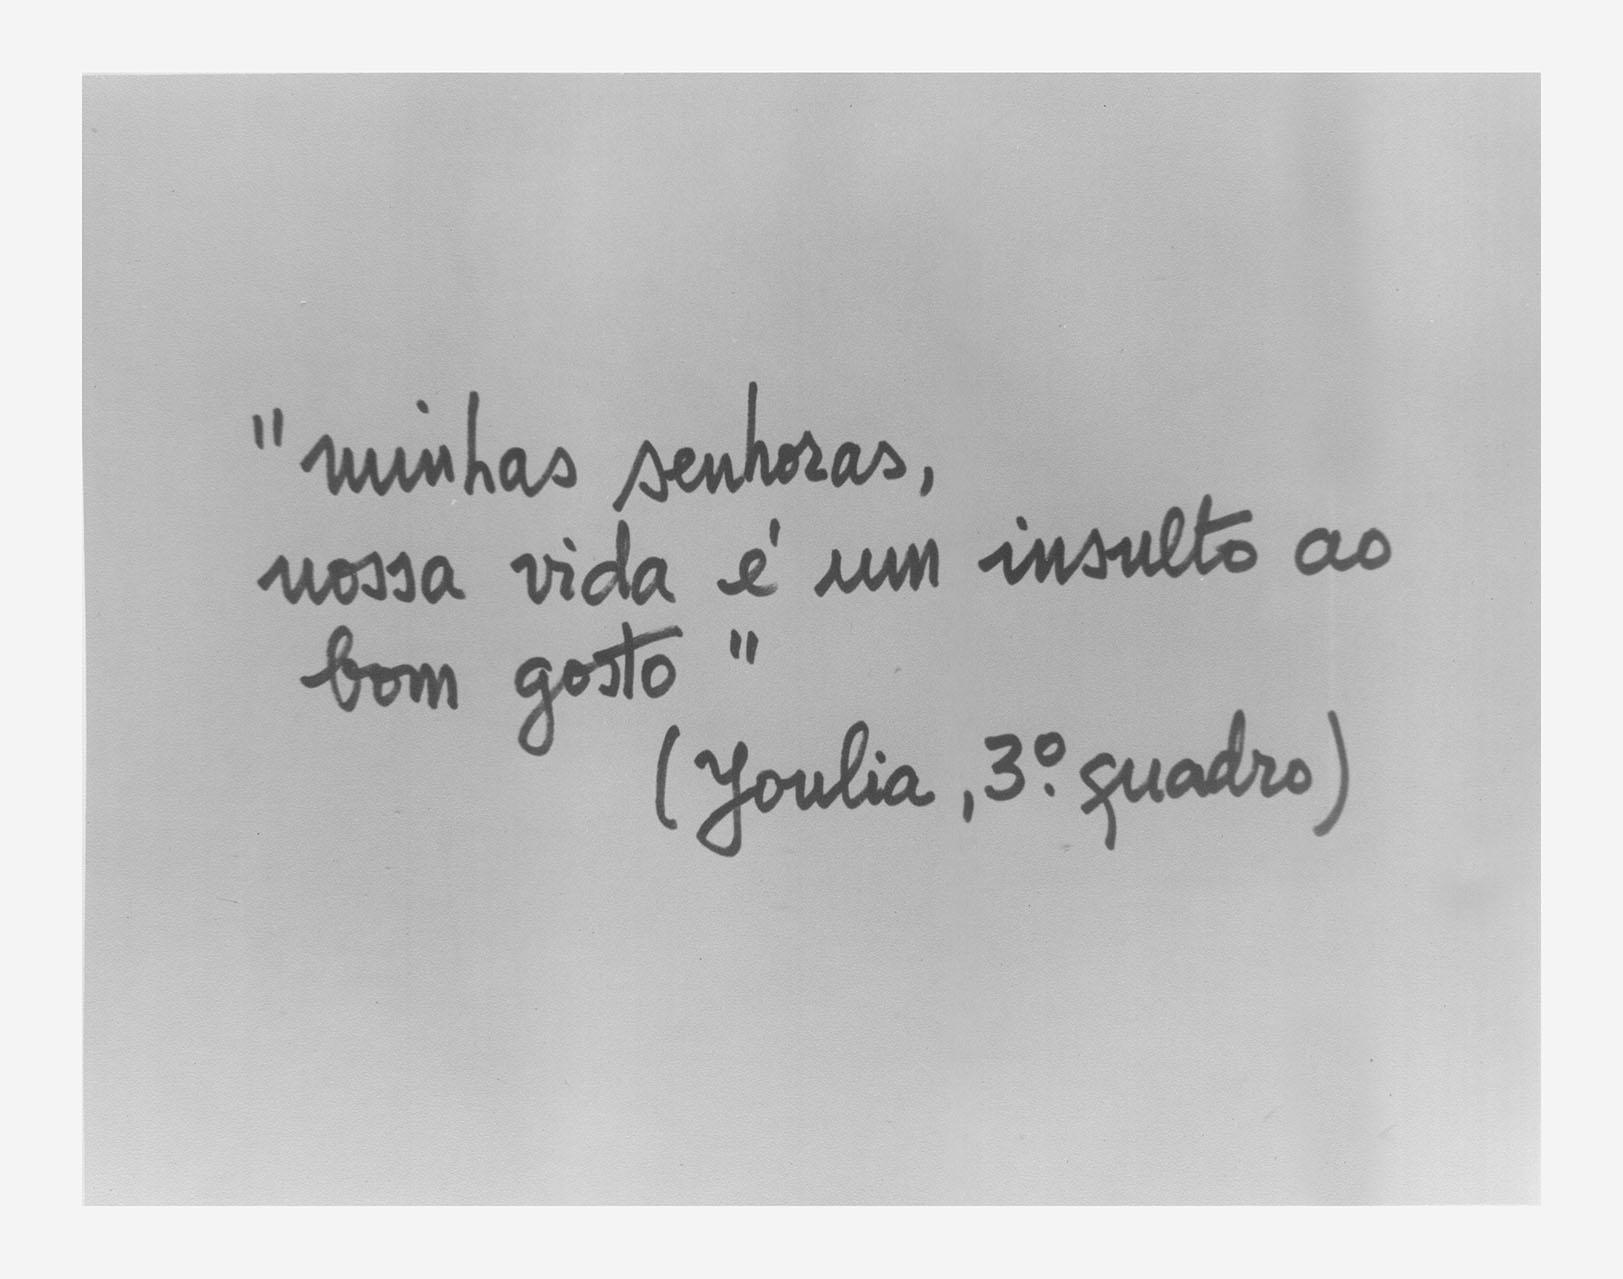 "minhas senhoras,
nossa vida é um insulto ao
bom gosto"
(Youlia, 3º. quadro)